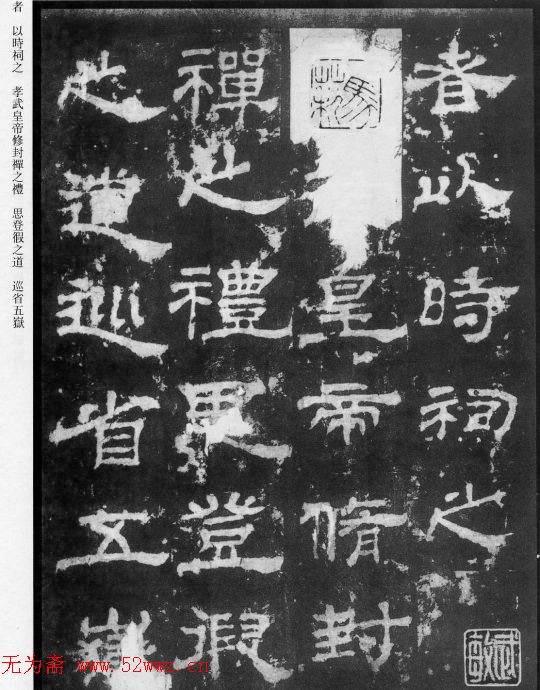 者以時祠之
皇帝脩封
禪之禮思登徦
之道巡省五嶽
者　以時祠之　孝武皇帝修封禪之禮　思登徦之道　巡省五嶽
无为斋 www.52wwz.cn